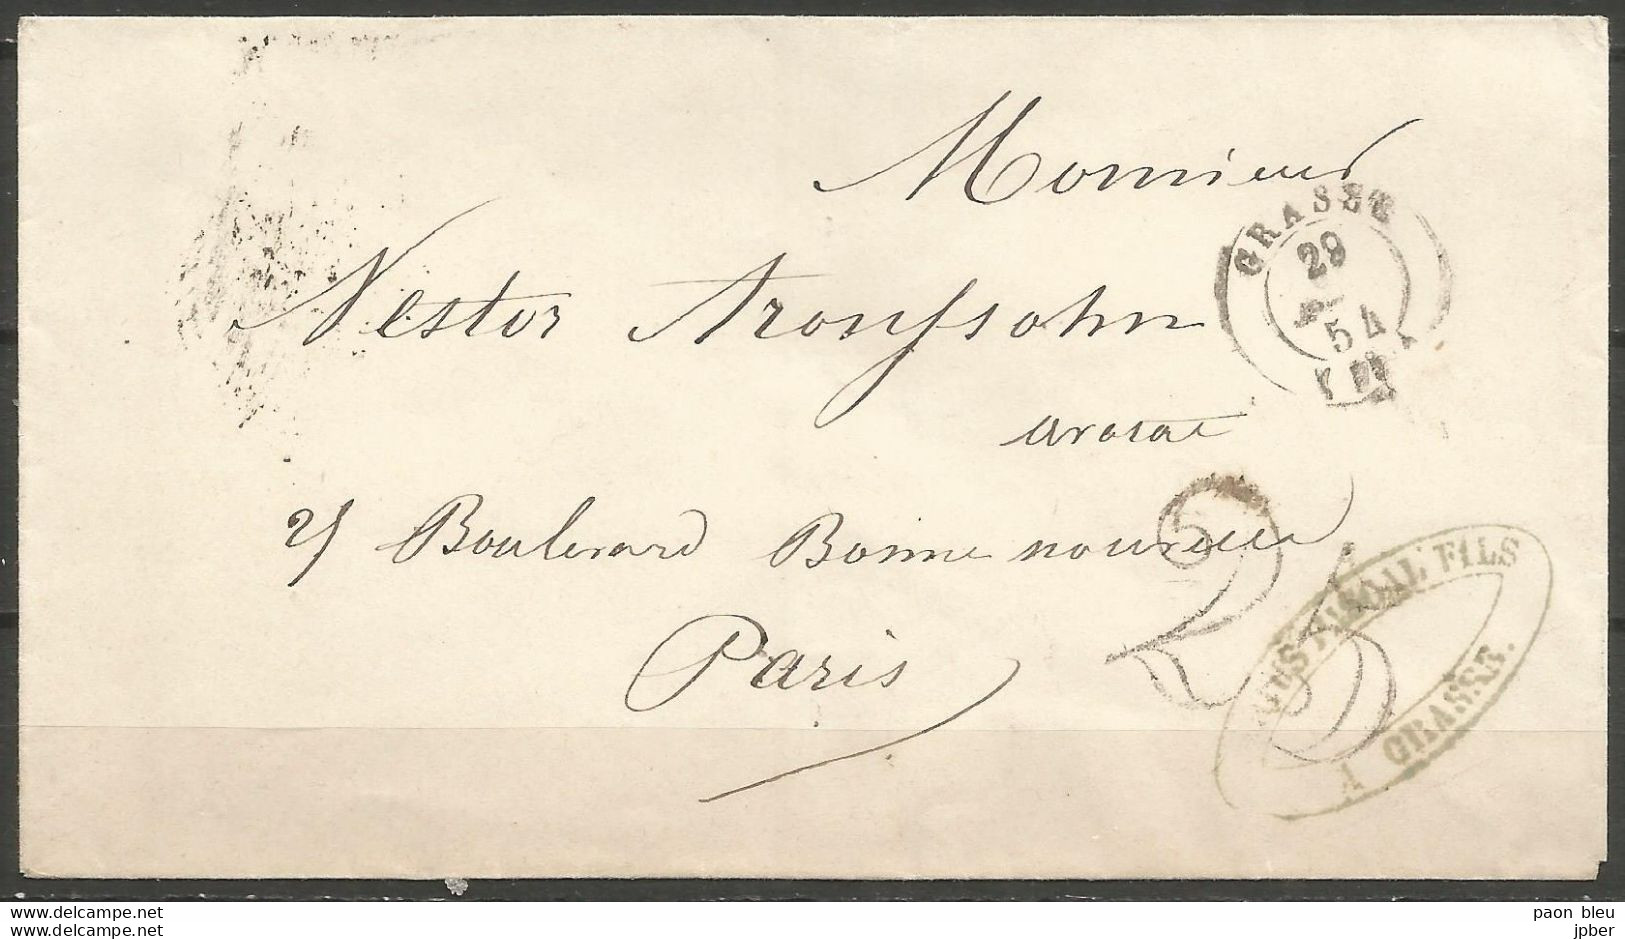 Monsieur
GRASSE
29
54
Nestor Aronssohn
avocat
25 Boulevard Bonne nouvelle
Paris
25
FILS
A GRASSE.
www.delcampe.net
www.delcampe.net
paon bleu
jpber